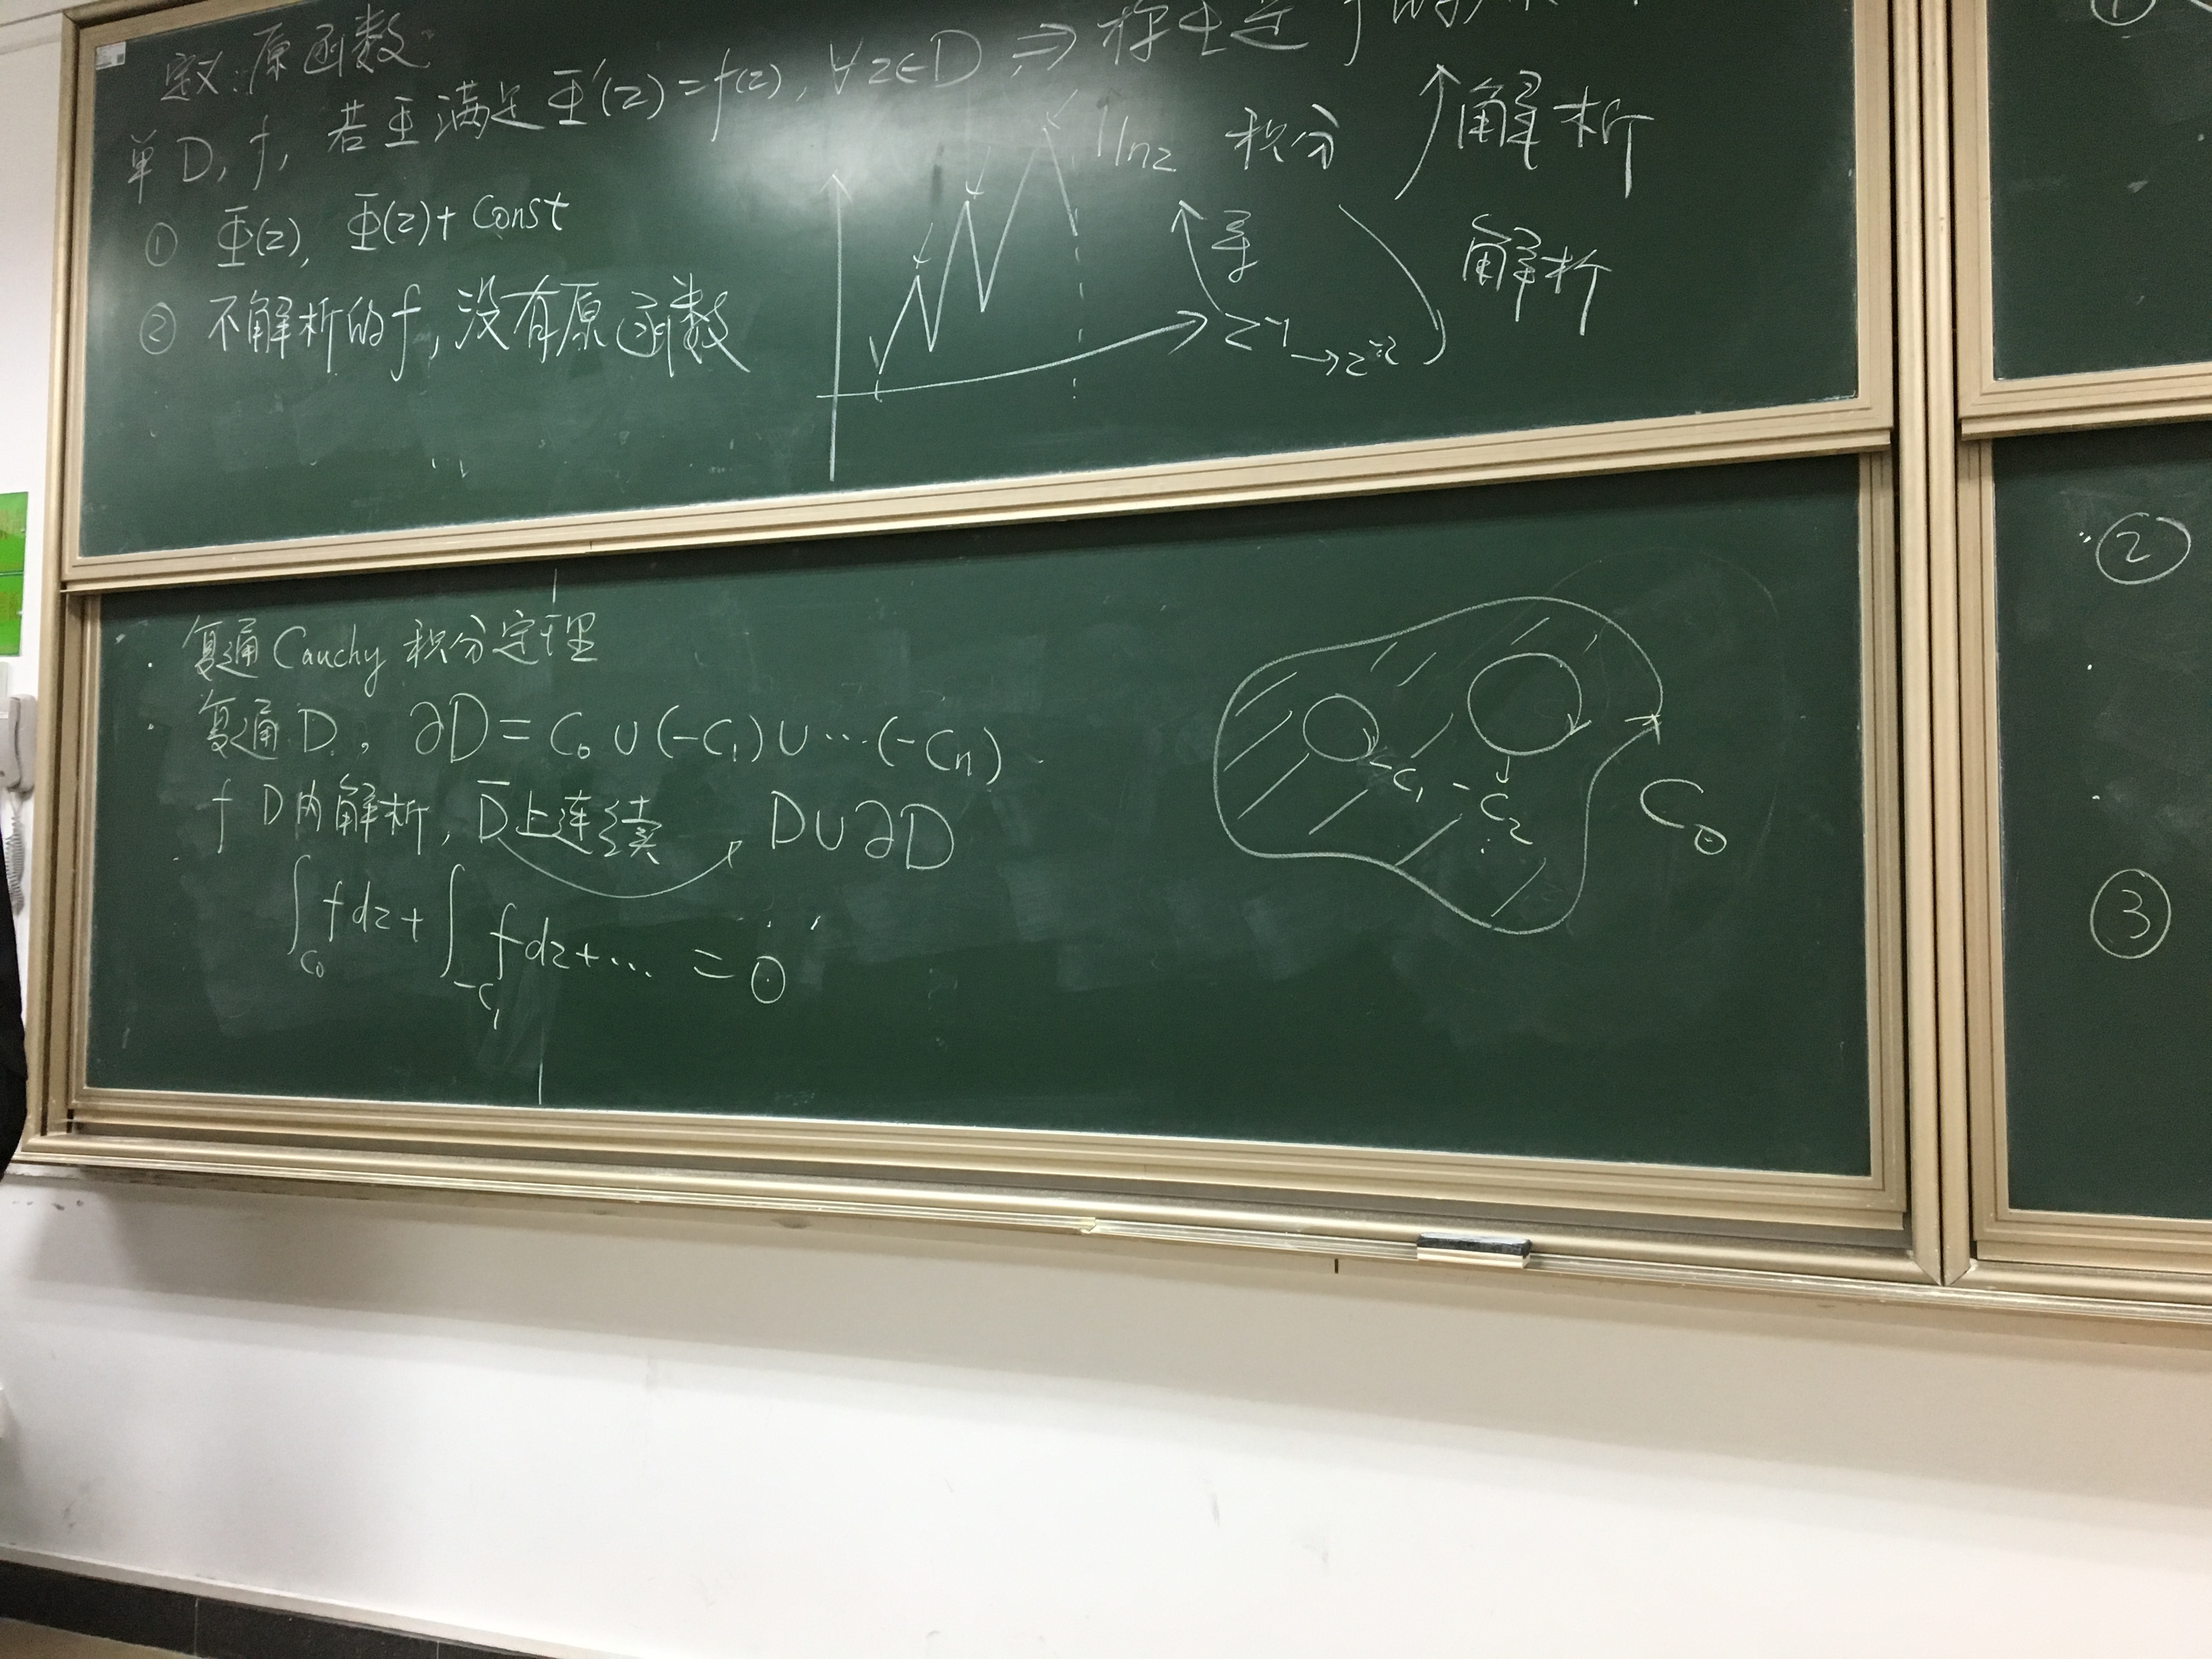 定义:原函数
单D, f, 若Φ满足Φ'(z)=f(z), ∀z∈D, ⇒ 称Φ是f的原
① Φ(z), Φ(z)+Const
② 不解析的f, 没有原函数
lnz 积分 解析
导 解析
z⁻¹→z⁻²
· 复通Cauchy积分定理
· 复通D, ∂D = C₀∪(-C₁)∪…(-Cₙ)
f D内解析, D̄上连续 D∪∂D
∫_{C₀} fdz + ∫_{-C₁} fdz+… = 0
-C₁ -C₂ C₀
①
②
③